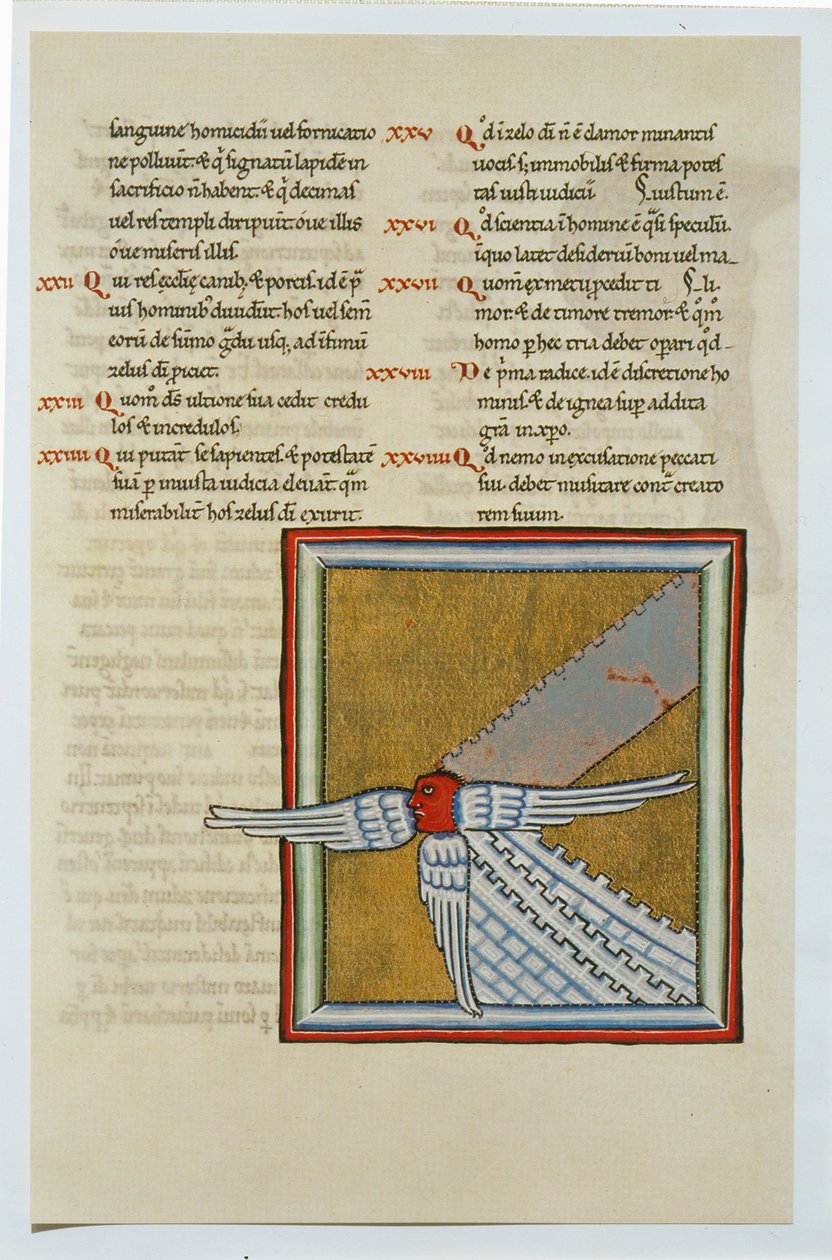 sanguine homicidii uel fornicatio
ne polluūt. & qͥ signatū lapidē in
sacrificio n̄ habent. & qͥ decimas
uel res templi diripiūt. óue illis
óue miseris illis.
XXII Qui res ęcclię canib; & porcis. id ē pͣ
uis hominibꝰ diuidūt. hos uel sem̄
eorū de sūmo gͣdu usq; ad īfimū
zelus dī ꝓiciet.
XXIII Quomͦ ds̄ ultione sua cedit credu
los & incredulos.
XXIIII Qui putāt se sapientes. & potestatē
suā ꝑ iniusta iudicia eleuāt. qͣm
miserabilit̄ hos zelus dī exurit.
XXV Qͦd ī zelo dī n̄ ē clamor minantis
uocis. s; immobilis & firma potes
tas iusti iudicii. iustum ē.
XXVI Qͦd scientia ī homine ē qͣsi speculū.
ī quo latet desideriū boni uel ma
XXVII Quom̄ ex metu ꝓcedit ti li.
mor. & de timore tremor. & qͦm
homo ꝑ hec tria debet oꝑari qͦd
XXVIII De pͥma radice. id ē discretione ho
minis. & de ignea suꝑ addita
grā in xpō.
XXVIIII Qͦd nemo in excusatione peccati
sui. debet musitare contͣ creato
rem suum.